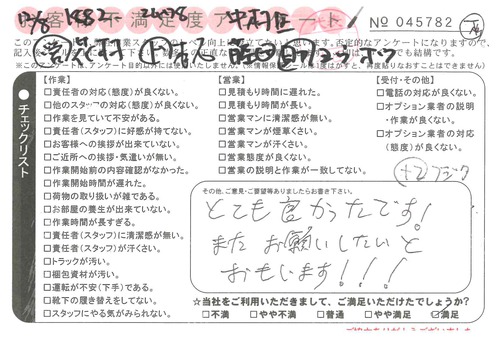 お客様不満足度アンケート No 045782
記入後
【作業】
□責任者の対応(態度)が良くない。
□他のスタッフの対応(態度)が良くない。
□作業を見ていて不安がある。
□責任者(スタッフ)に好感が持てない。
□お客様への挨拶が出来ていない。
□ご近所への挨拶・気遣いが無い。
□作業開始前の内容確認がなかった。
□作業開始時間が遅れた。
□荷物の取り扱いが雑である。
□お部屋の養生が出来ていない。
□作業時間が長すぎる。
□責任者(スタッフ)に清潔感が無い。
□責任者(スタッフ)が汗くさい。
□トラックが汚い。
□梱包資材が汚い。
□運転が安全(下手)である。
□靴下の履き替えをしてない。
□スタッフにやる気がみられない。
【営業】
□見積もり時間に遅れた。
□見積もり時間が長い。
□営業マンに清潔感が無い。
□営業マンが煙草くさい。
□営業マンが汗くさい。
□営業態度が良くない。
□営業の説明と作業が一致してない。
【受付・その他】
□電話の対応が良くない。
□オプション業者の説明
・作業が良くない。
□オプション業者の対応
(態度)が良くない。
チェックリスト
その他、ご意見・ご要望等ありましたらお書き下さい。
とても良かったです!
またお願いしたいと
おもいます!!!
☆当社をご利用いただきまして、ご満足いただけたでしょうか?
□不満 □やや不満 □普通 □やや満足 ☑満足